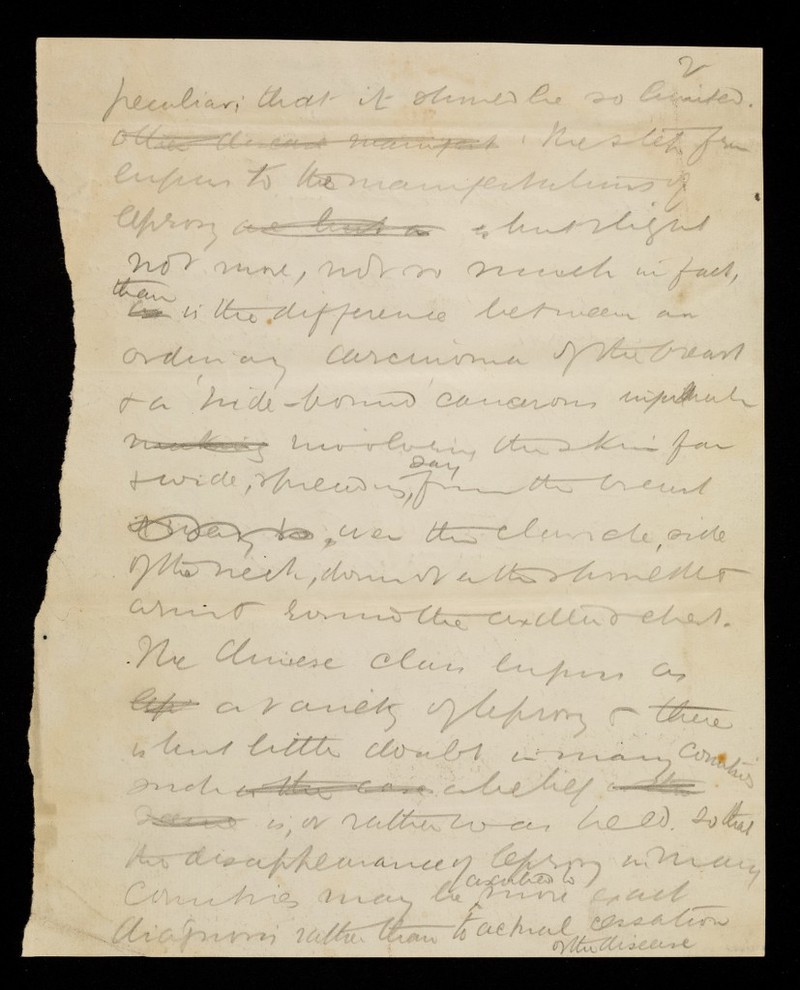 2
peculiar; that it should be so limited.
other disease manifest. The step from
lupus to the manifestations of
leprosy as but a is but slight
not more, not so much in fact,
than
as is the difference between an
ordinary carcinoma of the breast
+ a 'hide-bound' cancerous
making involving the skin far
say
+ wide, spreading, from the breast
it may be, over the clavicle, side
of the neck, down over the shoulder +
arm + round the axilla + chest.
The Chinese class lupus as
lep a variety of leprosy + there
is but little doubt in many countries
such is the case a belief
same is, or rather was held. So that
the disappearance of leprosy in many
ascribed to
countries may be more exact
diagnosis rather than to actual cessation
of the disease